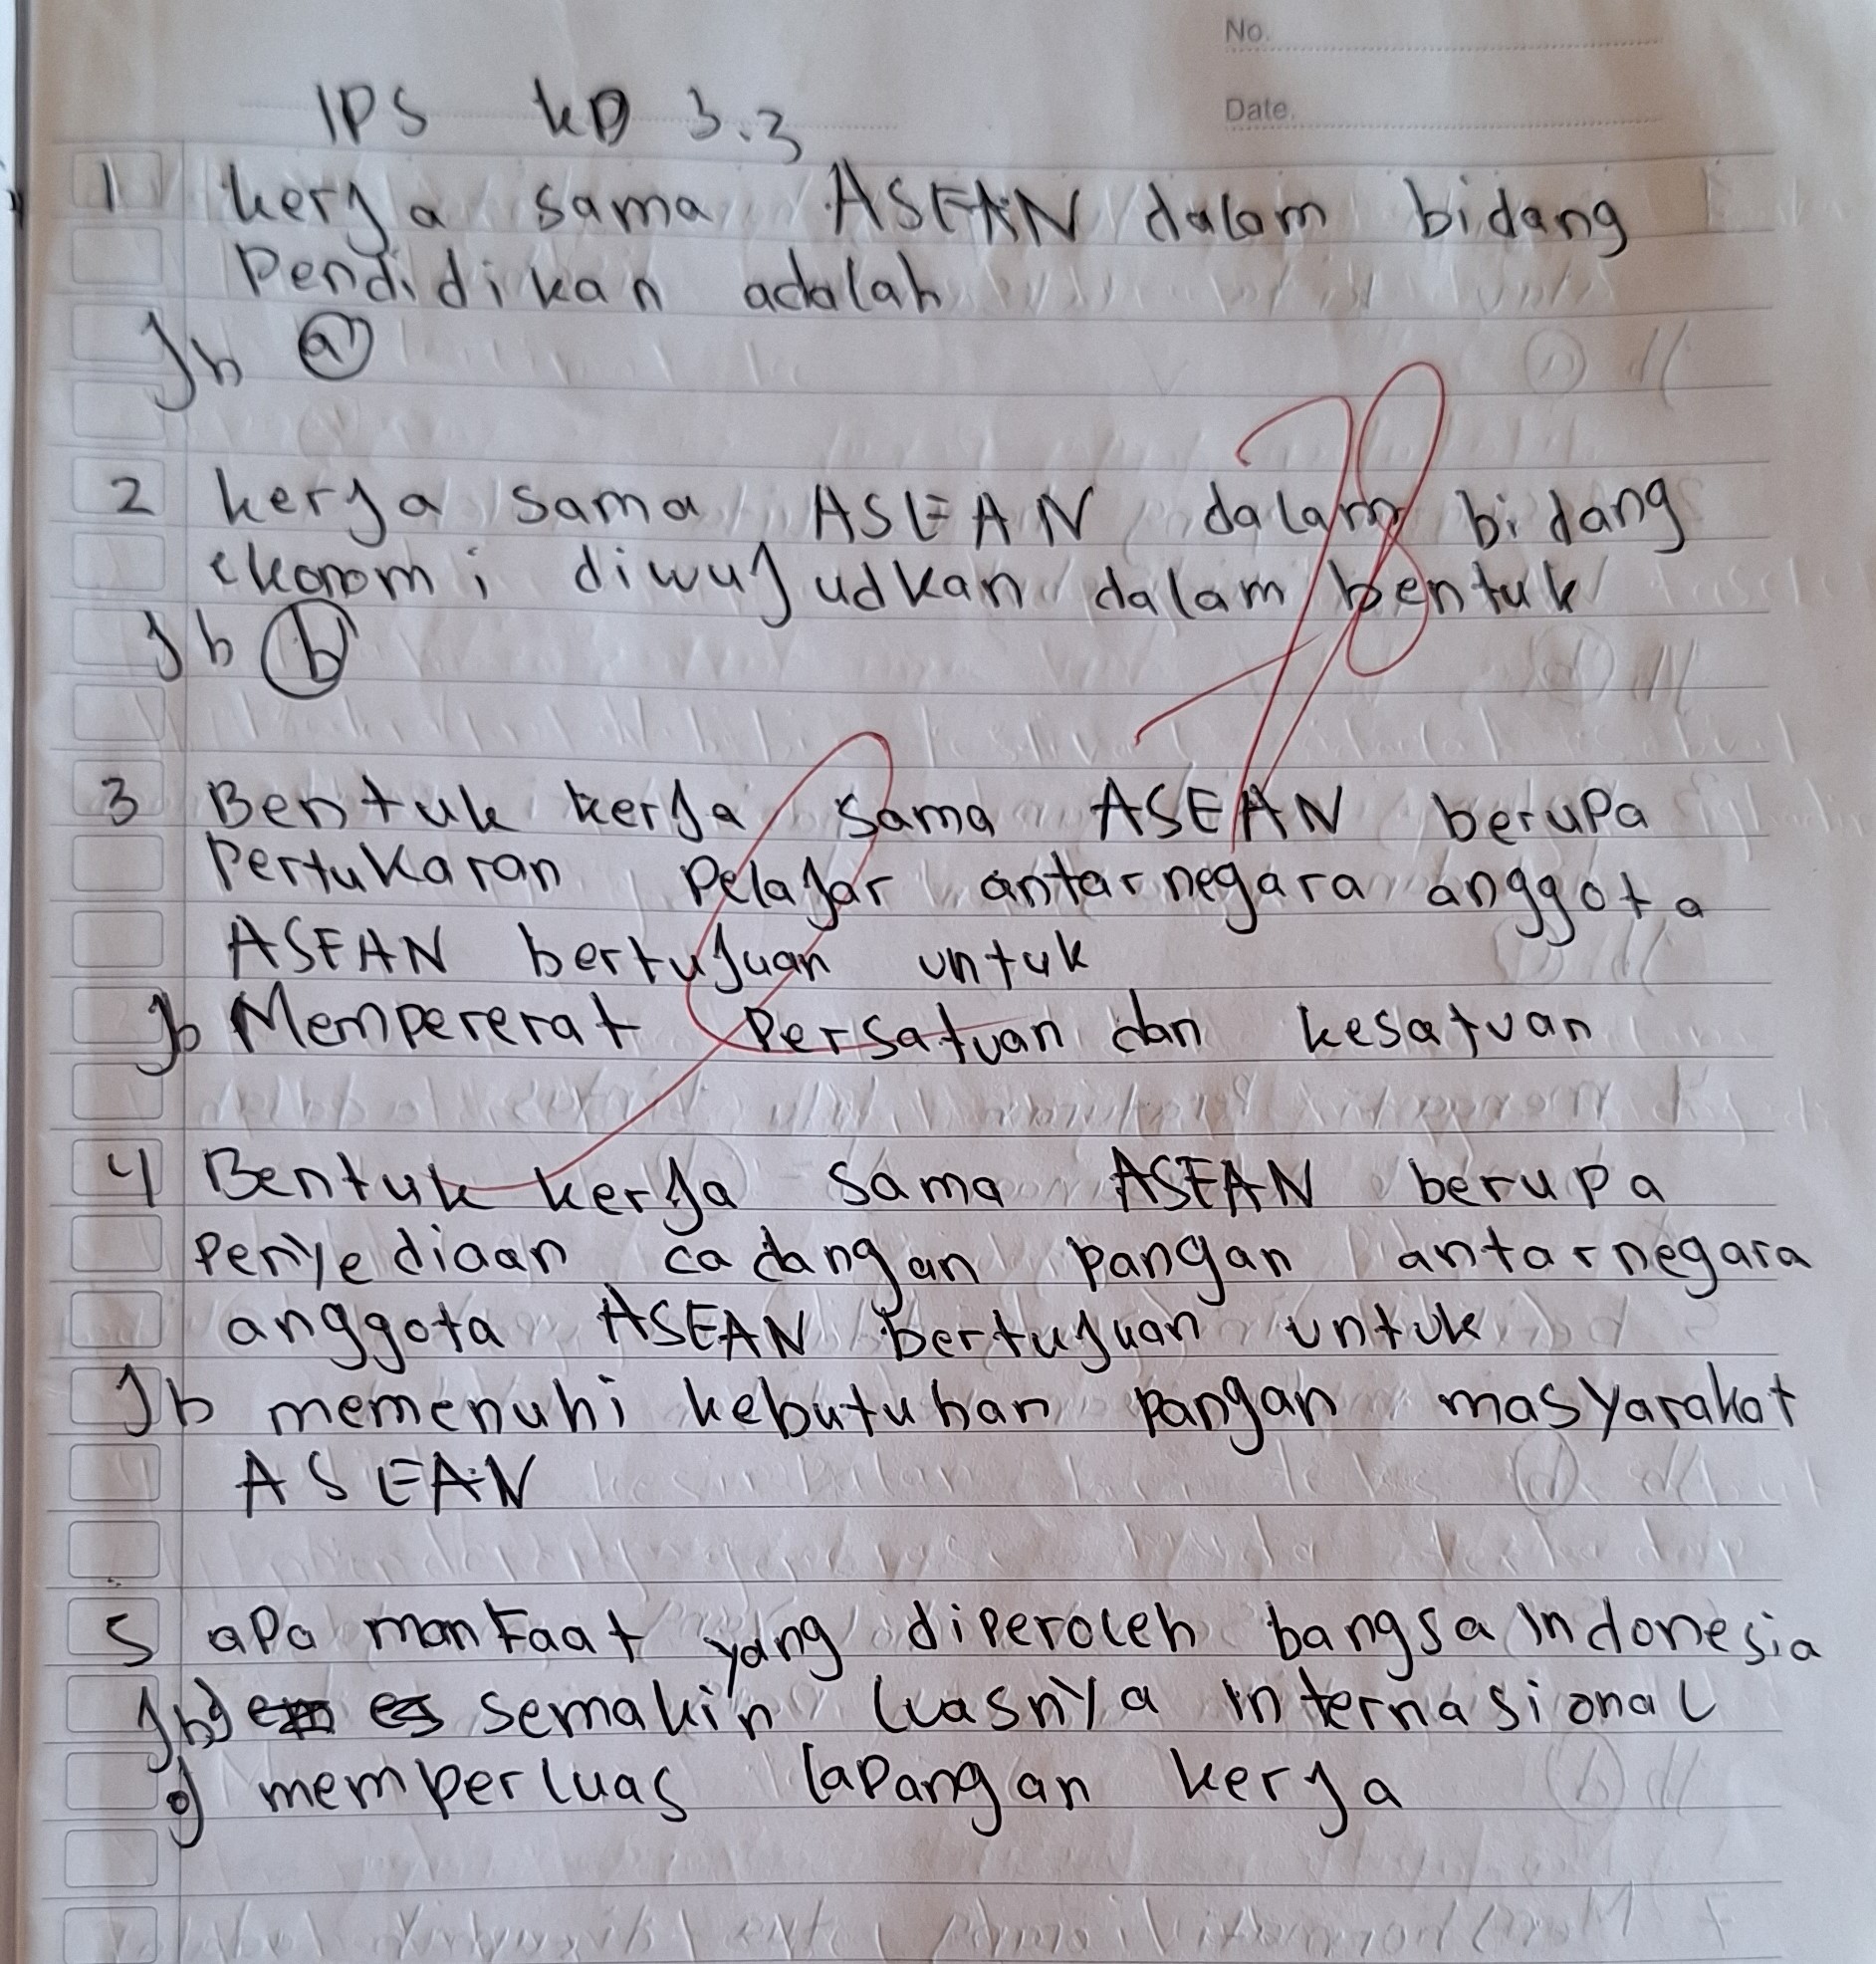 No.
Date.
IPS KD 3.3
1 kerja sama ASEAN dalam bidang
Pendidikan adalah
Jb a
2 kerja sama ASEAN dalam bidang
ekonomi diwujudkan dalam bentuk
Jb b
78
3 Bentuk kerja sama ASEAN berupa
Pertukaran Pelajar antarnegara anggota
ASEAN bertujuan untuk
Jb Mempererat Persatuan dan kesatuan
4 Bentuk kerja sama ASEAN berupa
Penyediaan cadangan pangan antarnegara
anggota ASEAN bertujuan untuk
Jb memenuhi kebutuhan pangan masyarakat
ASEAN
5 apa manfaat yang diperoleh bangsa indonesia
Jb semakin luasnya internasional
memperluas lapangan kerja